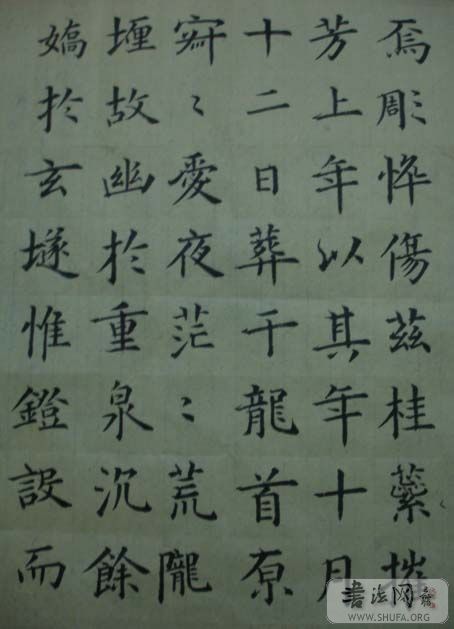 焉彫悴傷茲桂蘂摧
芳上年以其年十月
十二日葬于龍首原
寂〻愛夜茫〻荒隴
堙故幽於重泉沉餘
嬌於玄𡑞惟鐙設而
書法网
WWW.SHUFA.ORG